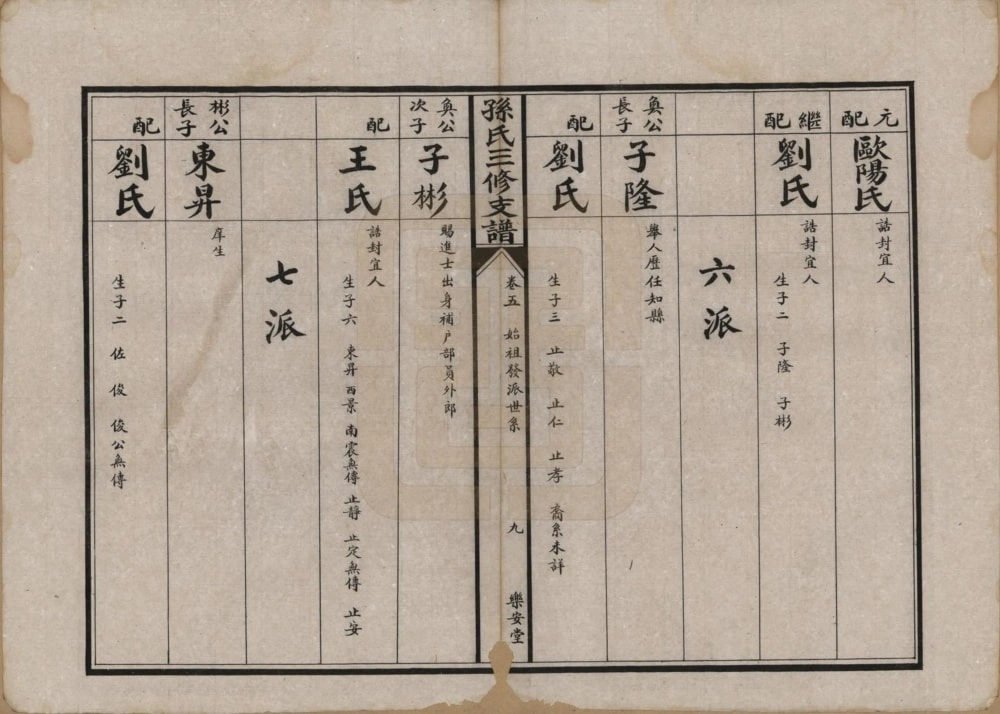 元配 歐陽氏 誥封宜人
繼配 劉氏 誥封宜人 生子二 子隆 子彬
六派
奐公長子 子隆 舉人歷任知縣
配 劉氏 生子三 止敬 止仁 止孝 裔系未詳
孫氏三修支譜 卷五 始祖發派世系 九 樂安堂
奐公次子 子彬 賜進士出身補户部員外郎
配 王氏 誥封宜人 生子六 東昇 西景 南震無傳 止靜 止定無傳 止安
七派
彬公長子 東昇 庠生
配 劉氏 生子二 佐 俊 俊公無傳